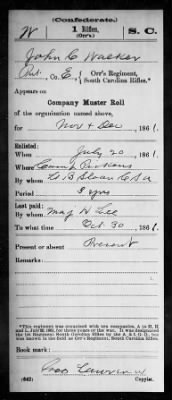 (Confederate.)
W 1 Rifles, S. C.
(Orr's)
John C Walker
Pvt, Co. E, Orr's Regiment, South Carolina Rifles.*
Appears on
Company Muster Roll
of the organization named above,
for Nov & Dec, 1861.
Enlisted:
When July 20, 1861.
Where Camp Pickens
By whom B Sloan C S A
Period 3 yrs
Last paid:
By whom Maj H Lee
To what time Oct 30, 1861.
Present or absent Present
Remarks:
*This regiment was organized with ten companies, A to
for three years or the war. It was designated
1st Regiment South Carolina Rifles by the A. & I. G. O., but
was borne in the field as Orr's Regiment, South Carolina Rifles.
Book mark:
(642) Copyist.